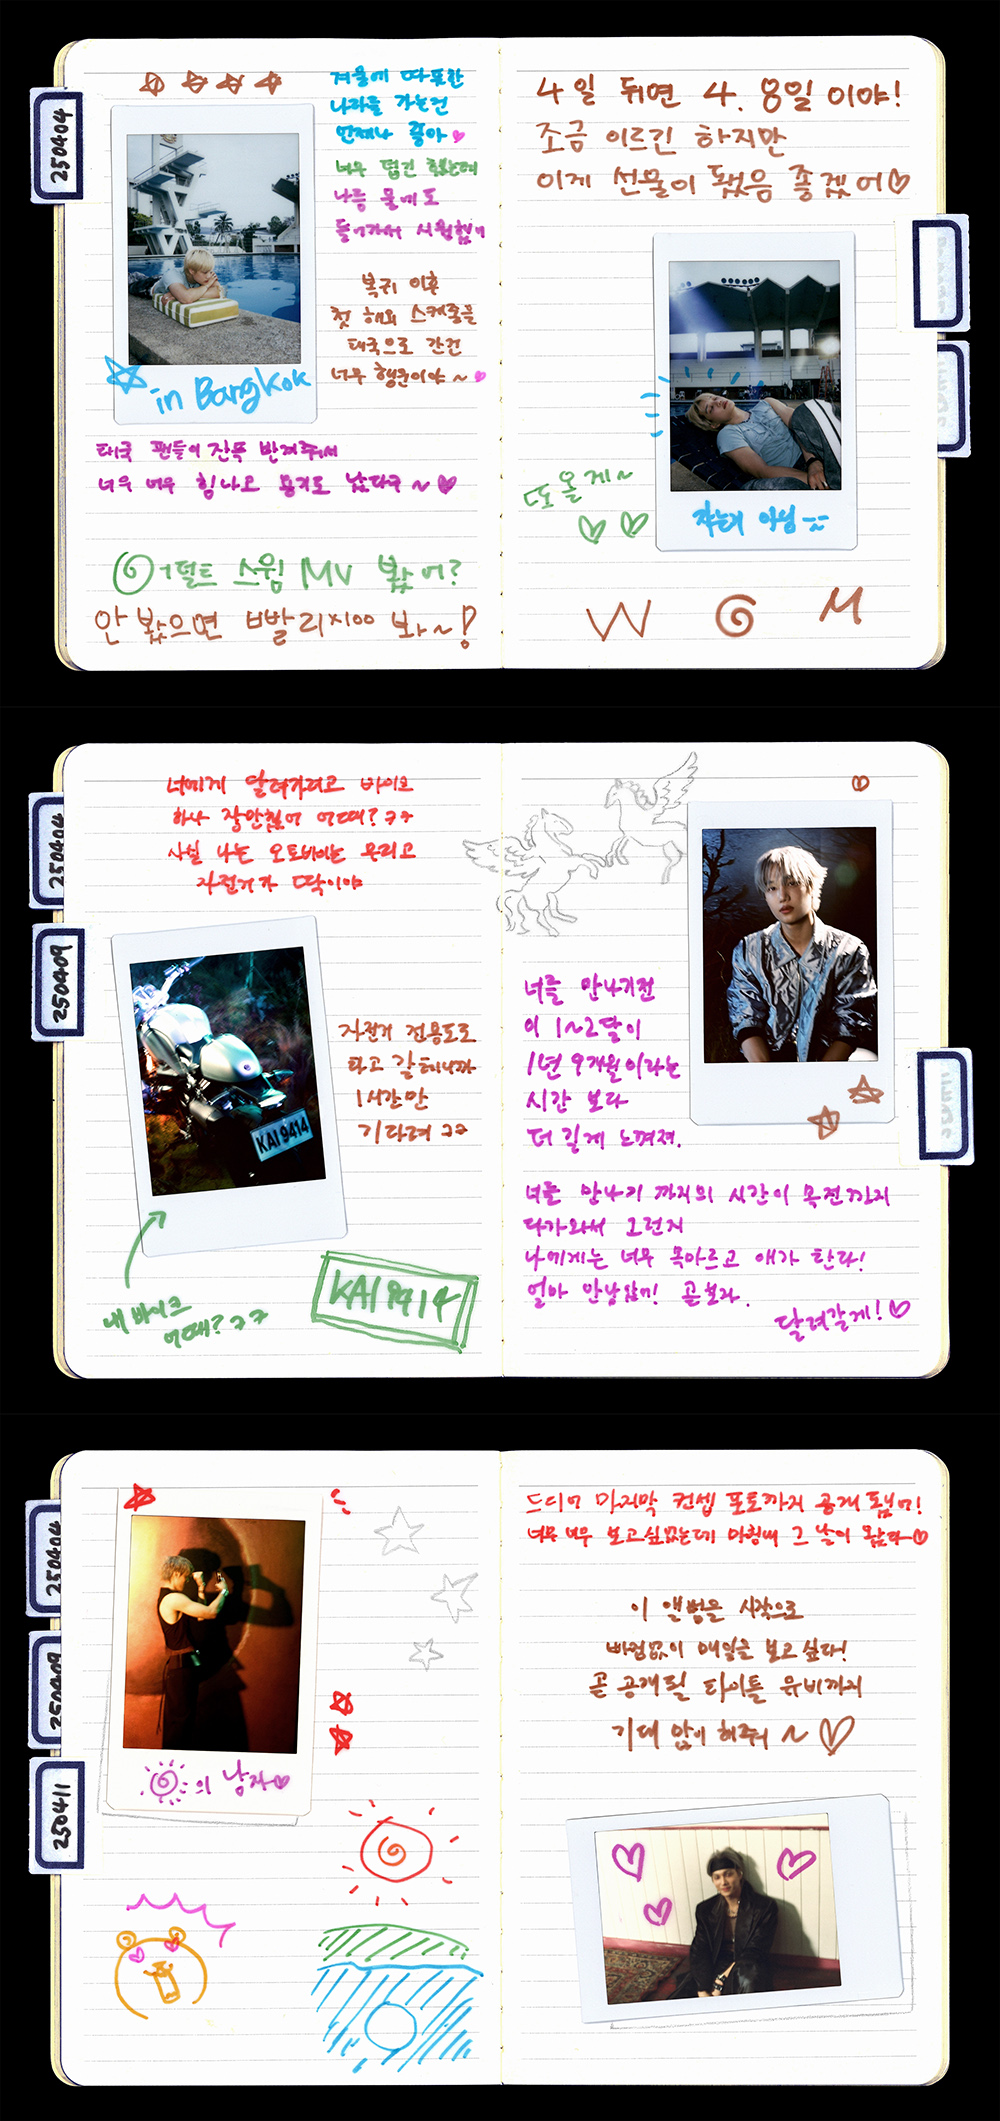 250404
겨울에 따뜻한
나라를 가는건
언제나 좋아
너무 덥긴 했는데
나름 물에도
들어가서 시원했어
복귀 이후
첫 해외 스케줄을
태국으로 간건
너무 행운이야~
in Bangkok
태국 팬들이 잔뜩 반겨줘서
너무 너무 힘나고 용기도 났다구~
어덜트 스윔 MV 봤어?
안 봤으면 빨리 x100 봐~!
4일 뒤면 4. 8일이야!
조금 이르긴 하지만
이게 선물이 됐음 좋겠어
또 올게~
자는거 아님 --
W M
250404
250409
너에게 달려가려고 바이크
하나 장만했어 어때? ㅋㅋ
사실 나는 오토바이는 무리고
자전거가 딱이야
KAI 9414
자전거 전용도로
타고 갈테니까
1시간만
기다려 ㅋㅋ
내 바이크
어때? ㅋㅋ
KAI 9414
너를 만나기전
이 1~2달이
1년 9개월이라는
시간 보다
더 길게 느껴져.
너를 만나기 까지의 시간이 목전까지
다가와서 그런지
나에게는 너무 목마르고 애가 탄다!
얼마 안남았어! 곧 보자.
달려갈게!
250404
250409
250411
의 남자
드디어 마지막 컨셉 포토까지 공개 됐어!
너무 너무 보고싶었는데 마침내 그 날이 왔다
이 앨범을 시작으로
빠짐없이 매일을 보고 싶다!
곧 공개될 타이틀 뮤비까지
기대 많이 해줘~